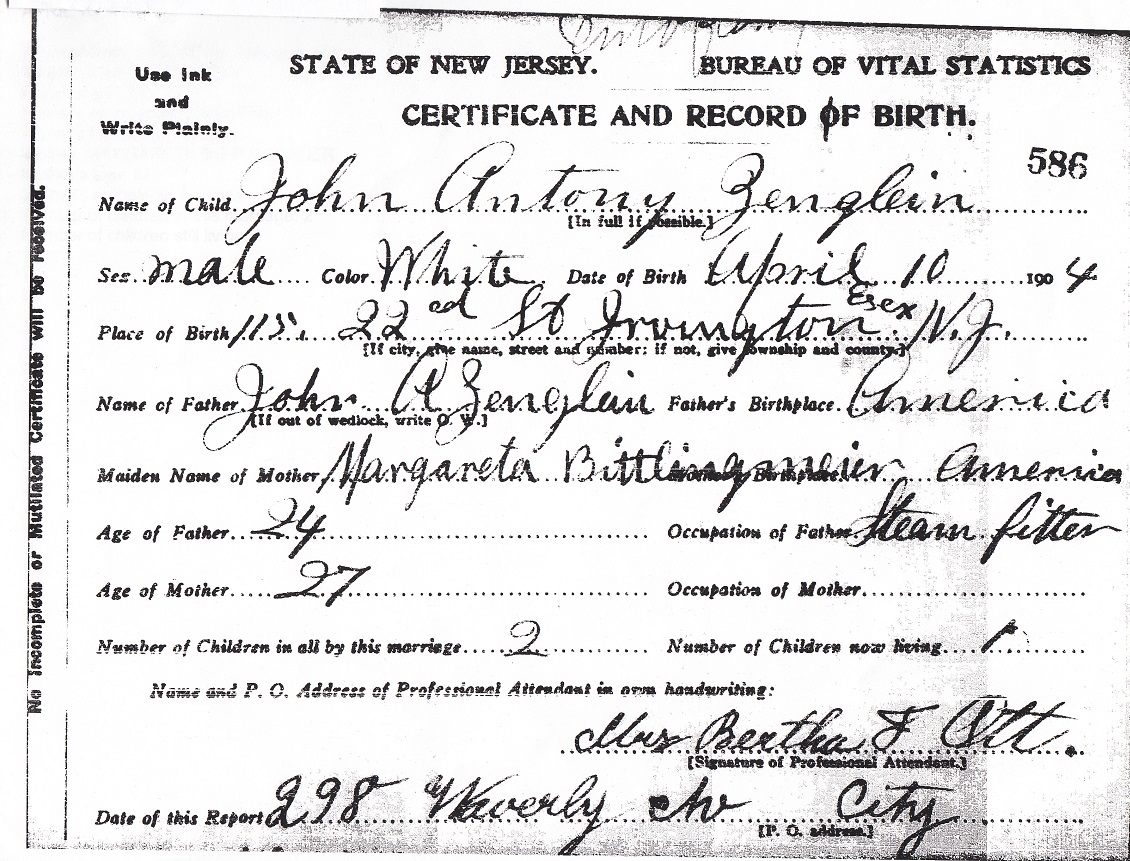 STATE OF NEW JERSEY. BUREAU OF VITAL STATISTICS
Use Ink
and
Write Plainly.
CERTIFICATE AND RECORD OF BIRTH.
586
No incomplete or Mutilated Certificate will be received.
Name of Child John Antony Zenglein
[In full if possible.]
Sex male Color White Date of Birth April 10 1904
Place of Birth 115 22ed St Irvington Essex N.J.
[If city, give name, street and number; if not, give township and county.]
Name of Father John A Zenglein Father's Birthplace America
[If out of wedlock, write O. W.]
Maiden Name of Mother Margareta Bittlingmeier Birthplace America
Age of Father 24 Occupation of Father Steam fitter
Age of Mother 27 Occupation of Mother
Number of Children in all by this marriage 2 Number of Children now living 1
Name and P. O. Address of Professional Attendant in own handwriting:
Mrs Bertha F Ott.
[Signature of Professional Attendant.]
Date of this Report 298 Waverly Av City
[P. O. address.]